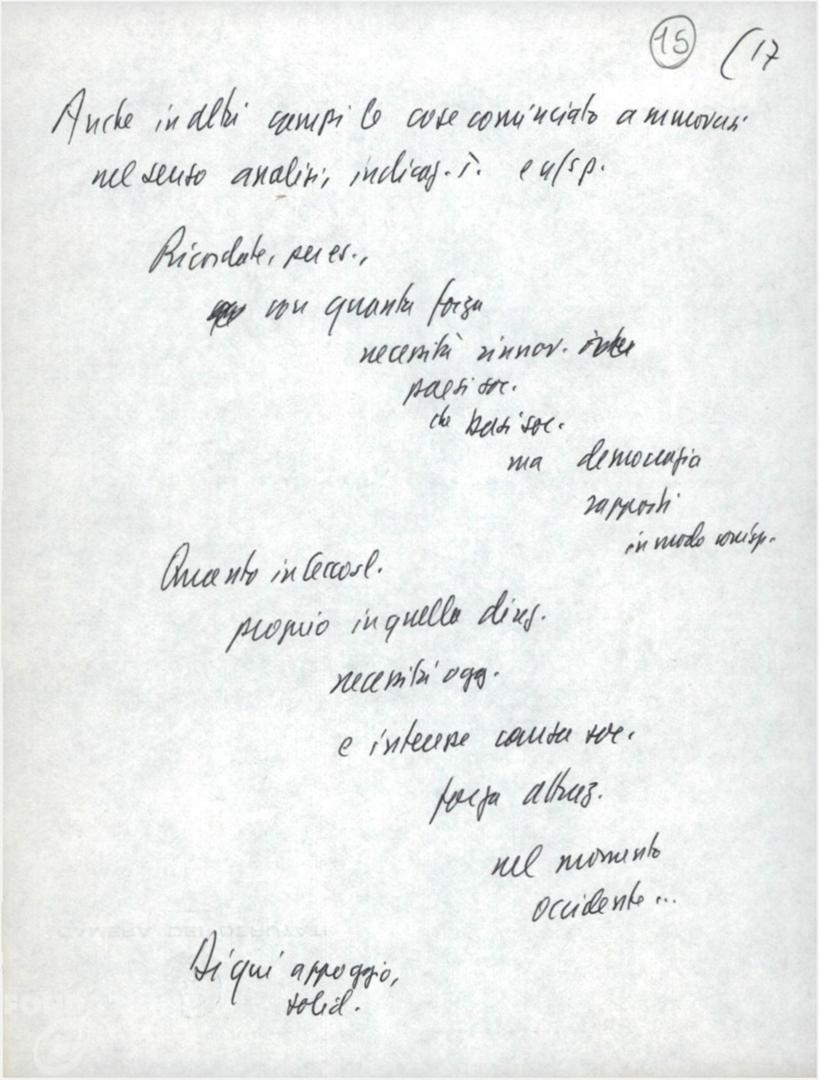 15 (17
Anche in altri campi le cose cominciato a muoversi
nel senso analisi, indicaz. i. e u/sp.
Ricordate, per es.,
con quanta forza
necessità rinnov.
paesi soc.
che basi soc.
ma democrazia
rapporti
in modo corrisp.
Quanto in Cecosl.
proprio in quella direz.
necessità ogg.
e interesse causa soc.
forza attraz.
nel momento
occidente...
Di qui appoggio,
solid.
CAMERA DEI DEPUTATI